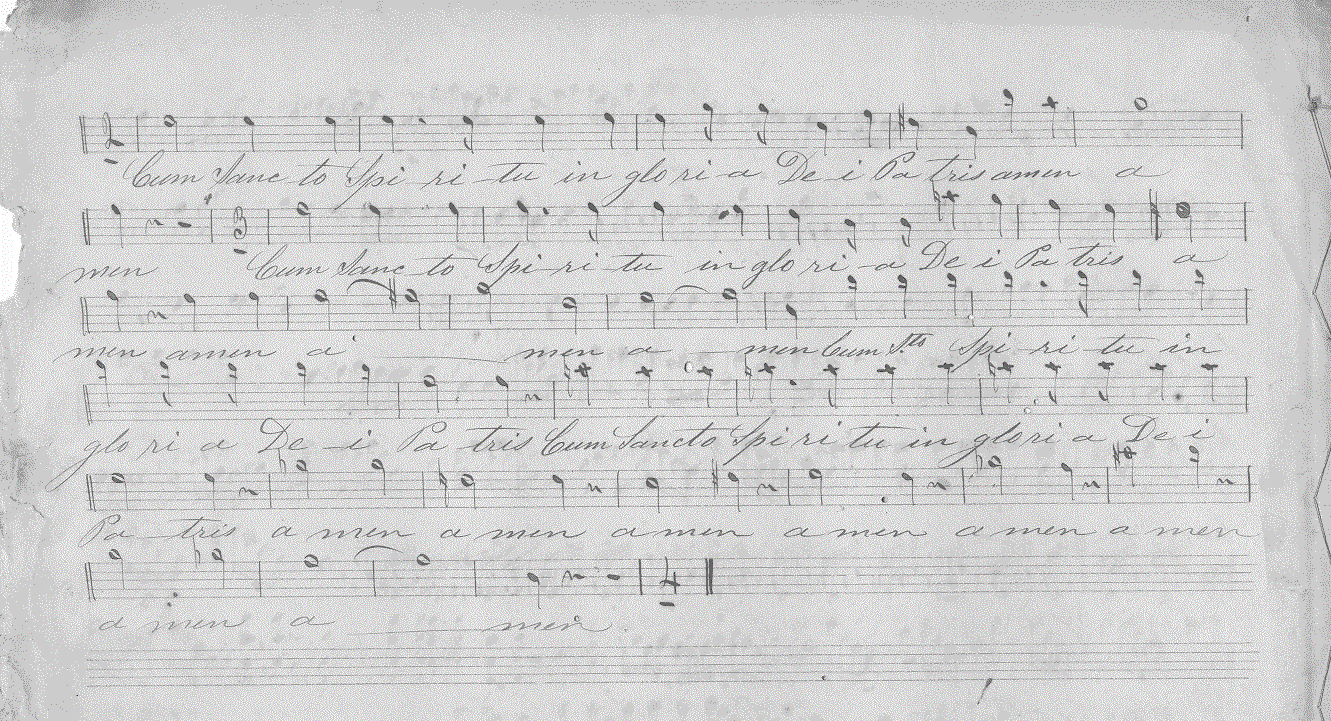 2
Cum Sanc to Spi ri tu in glo ri a De i Pa tris amen a
3
men Cum Sanc to Spi ri tu in glo ri a De i Pa tris a
men amen a men a men Cum S.to Spi ri tu in
glo ri a De i Pa tris Cum Sancto Spi ri tu in glori a De i
Pa tris a men a men a men a men a men a men
4
a men a men